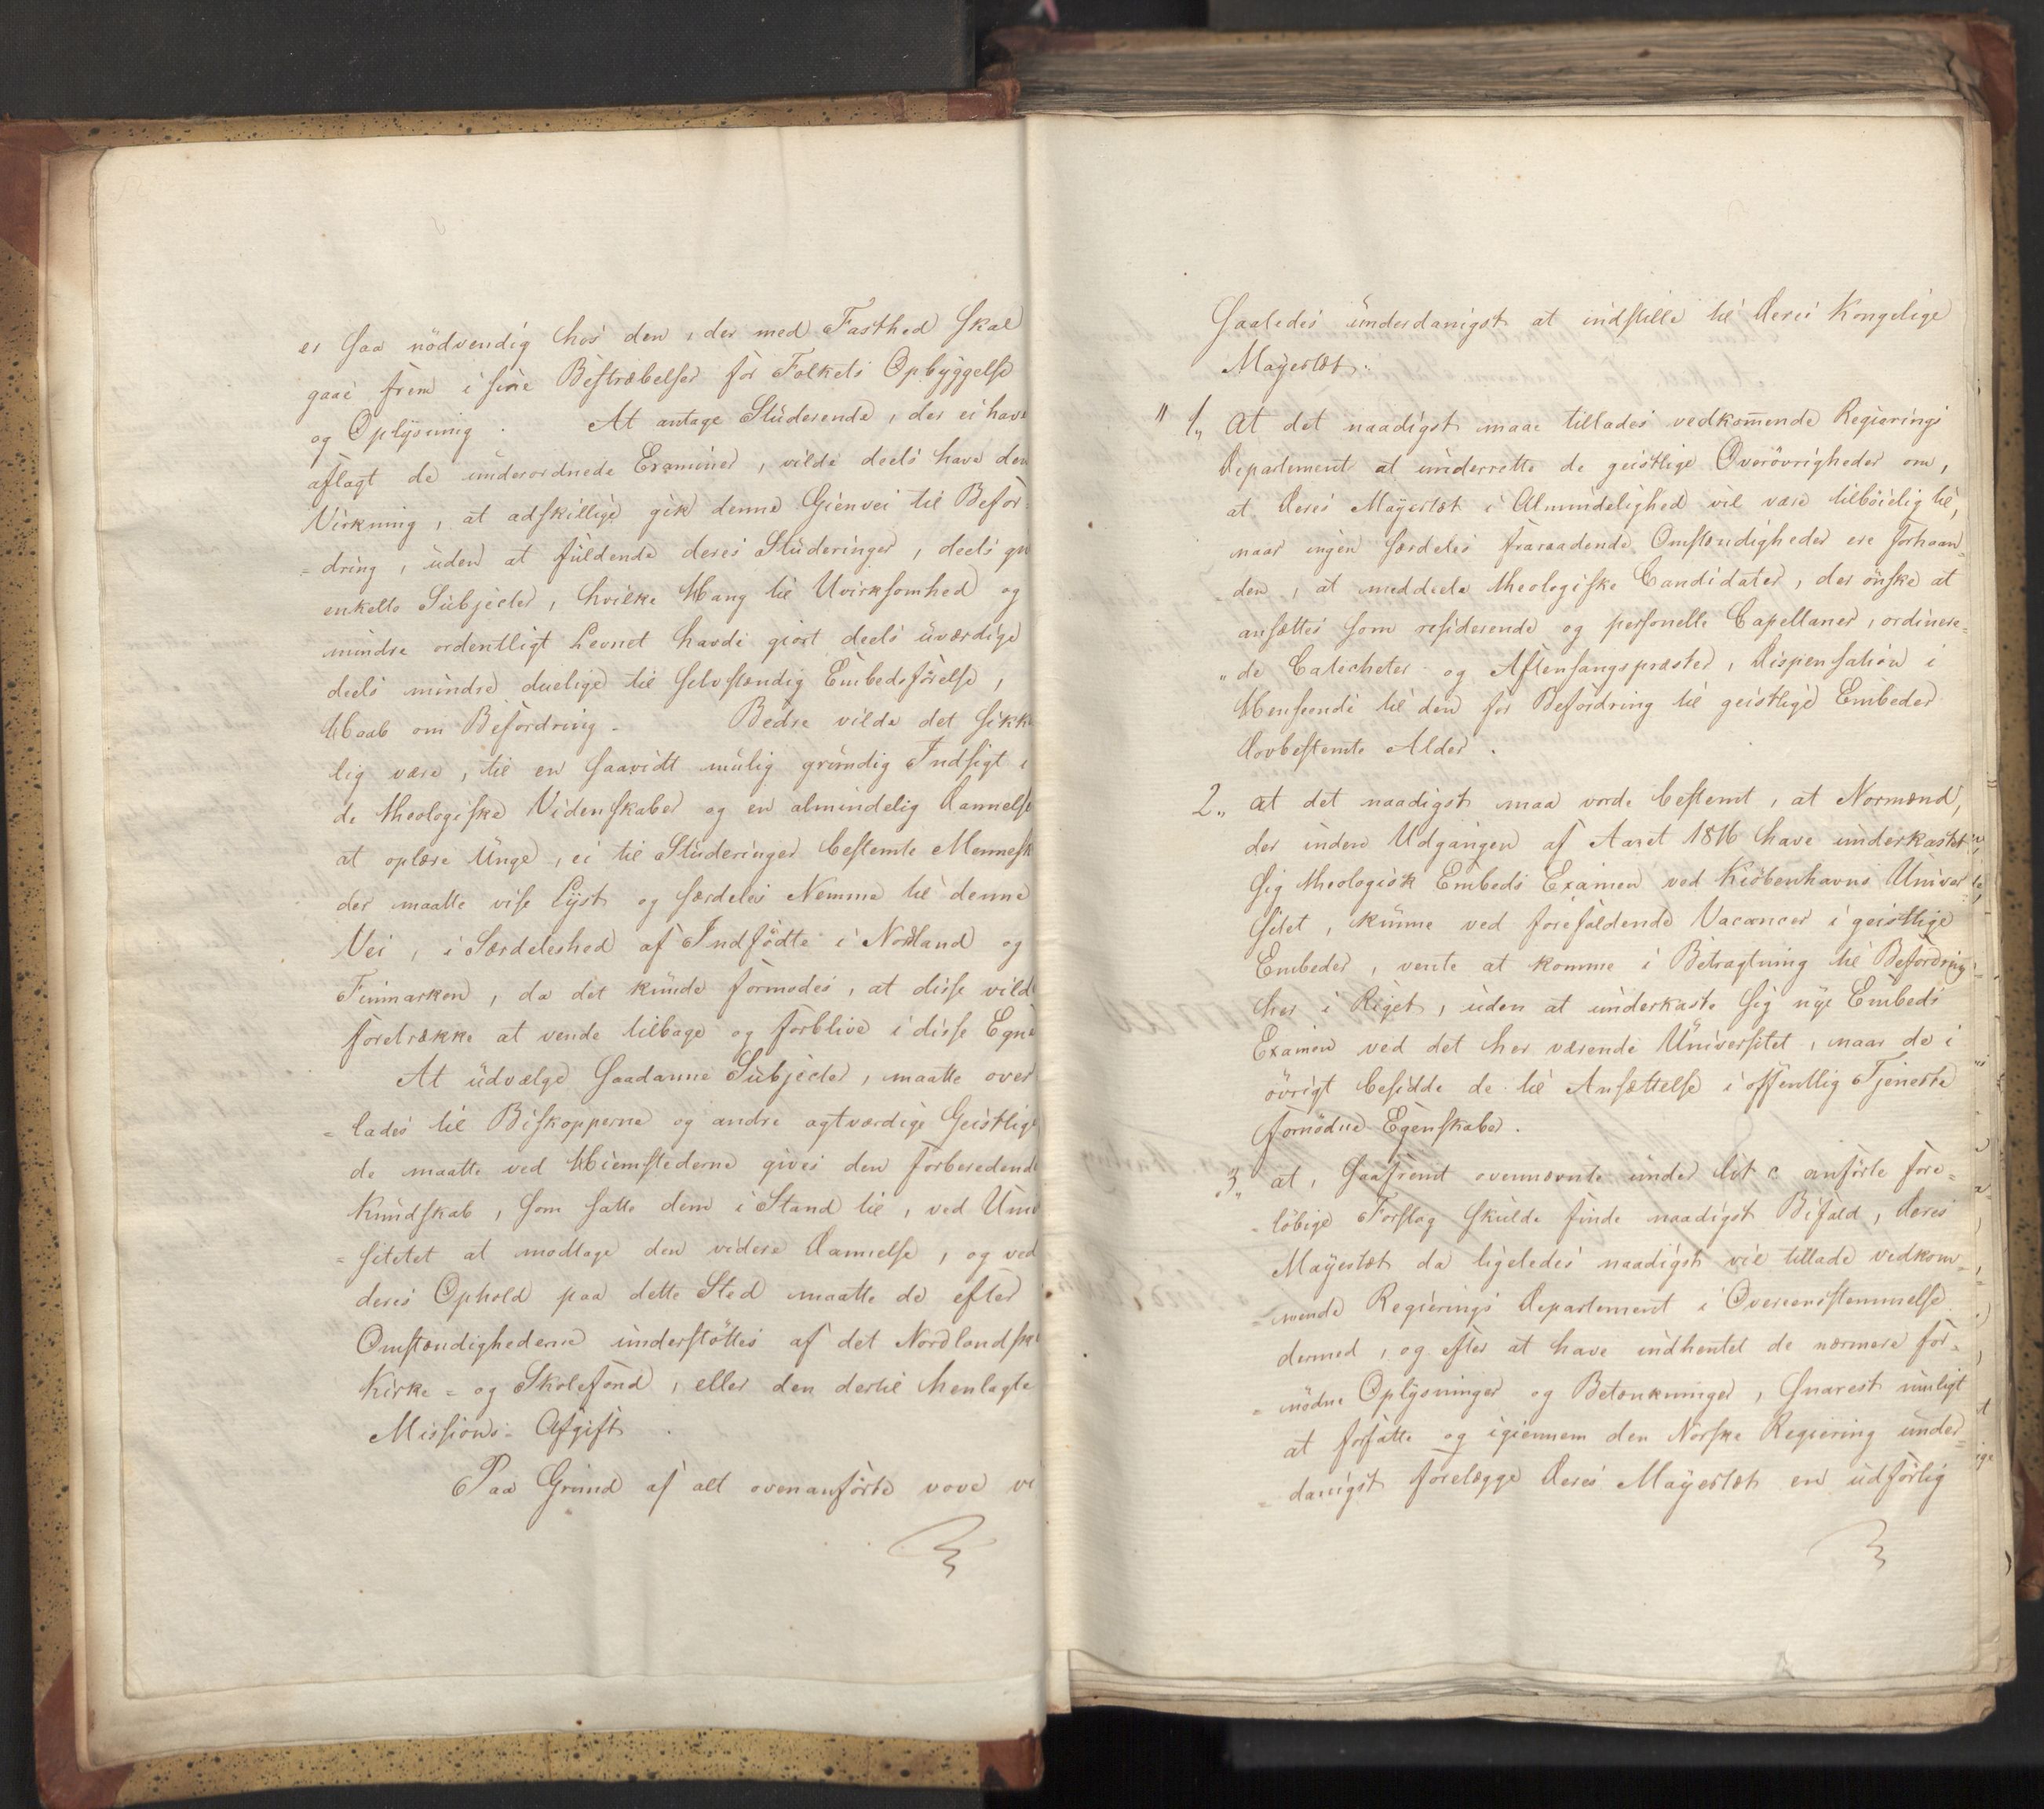 er saa nödvendig hos den, der med Fasthed skal
gaae frem i sine Bestræbelser for Folkets Opbyggelse
og Oplysning. At antage Studerende, der ei have
aflagt de underordnede Examiner, vilde deels have den
Virkning, at adskillige gik denne Gienvei til Befor-
=dring, uden at fuldende deres Studeringer, deels
enkelte Subjecter, hvilke Hang til Uvirksomhed og
mindre ordentligt Levnet havde giort deels uværdige
deels mindre duelige til selvstændig Embedsförelse,
Haab om Befordring. Bedre vilde det sikk
lig være, til en saavidt mulig grundig Indsigt i
de theologiske Videnskaber og en almindelig Dannelse
at oplære Unge, ei til Studeringer bestemte Mennesk
der maatte vise Lyst og særdeles Nemme til denne
Vei, i Særdeleshed af Indfödte i Nordland og
Finmarken, da det kunde formodes, at disse vilde
foretrække at vende tilbage og forblive i disse Egne
At udvælge saadanne Subjecter, maatte over
=lades til Biskopperne og andre agtværdige Geistlige
de maatte ved Hiemstederne gives den forberedende
Kundskab, som satte dem i Stand til, ved Univ
=sitetet at modtage den videre Dannelse, og ved
deres Ophold paa dette Sted maatte de efter
Omstændighederne understöttes af det Nordlandske
Kirke- og Skolefond, eller den dertil henlagte
Missions-Afgift.
Paa Grund af alt ovenanförte vove vi
Saaledes underdanigst at indstille til Deres Kongelige
Mayestæt:
" 1,, At det naadigst maae tillades vedkommende Regierings
Departement at underrette de geistlige Overövrigheder om,
at Deres Mayestæt i Almindelighed vil være tilböielig til,
naar ingen særdeles fraraadende Omstændigheder ere forhaan=
den, at meddele theologiske Candidater, der önske at
ansættes som residerende og personelle Capellaner, ordinere=
"de Catecheter og Aftensangspræster, Dispensation i
Henseende til den for Befordring til geistlige Embeder
lovbestemte Alder.
2,, at det naadigst maa vorde bestemt, at Normænd,
der inden Udgangen af Aaret 1816 have underkastet
sig theologisk Embeds Examen ved Kiöbenhavns Univer
sitet, kunne ved forefaldende Vacancer i geistlige
Embeder, vente at komme i Betragtning til Befordring
her i Riget, uden at underkaste sig nye Embeds
Examen ved det her værende Universitet, naar de i
övrigt besidde de til Ansættelse i offentlig Tjeneste
fornödne Egenskaber.
3,, at, saafremt ovennævnte under lit c anförte fore=
-löbige Forslag skulde finde naadigst Bifald, Deres
Mayestæt da ligeledes naadigst vil tillade vedkom=
=mende Regierings Departement i Overeenstemmelse
dermed, og efter at have indhentet de nærmere for=
=nödne Oplysninger og Betænkninger, snarest muligt
at forfatte og igiennem den Norske Regiering under=
=danigst forelægge Deres Mayestæt en udförlig